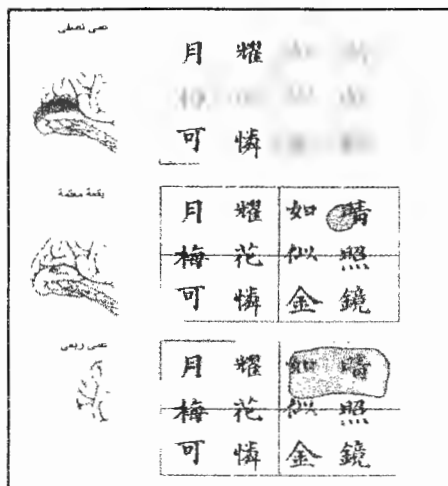 عمى نصفى
月 耀
可 憐
بقعة معتمة
月 耀 如 晴
梅 花 似 照
可 憐 金 鏡
عمى ربعى
月 耀 如 晴
梅 花 似 照
可 憐 金 鏡